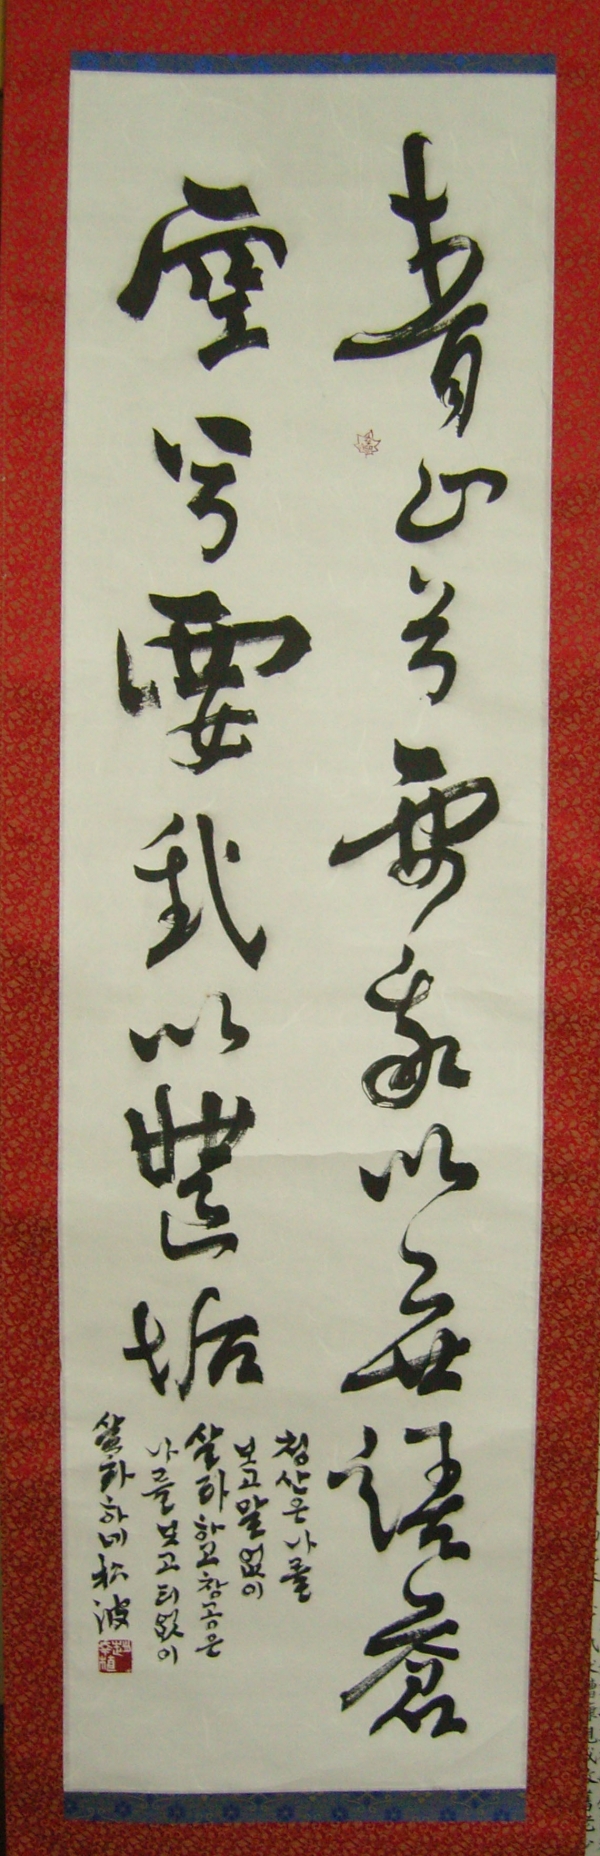 青山兮要我以無語蒼
空兮要我以無垢
청산은 나를
보고 말없이
살라하고 창공은
나를 보고 티없이
살라하네 松波